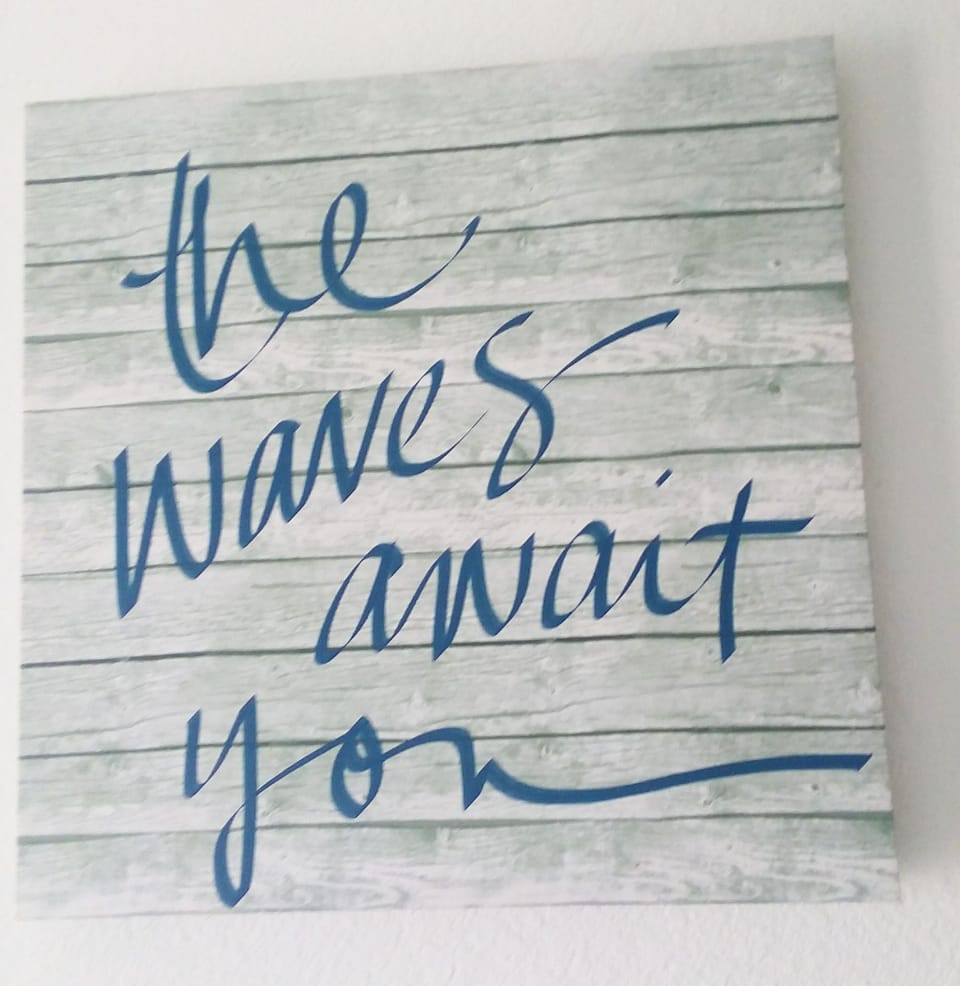 the
waves
await
you